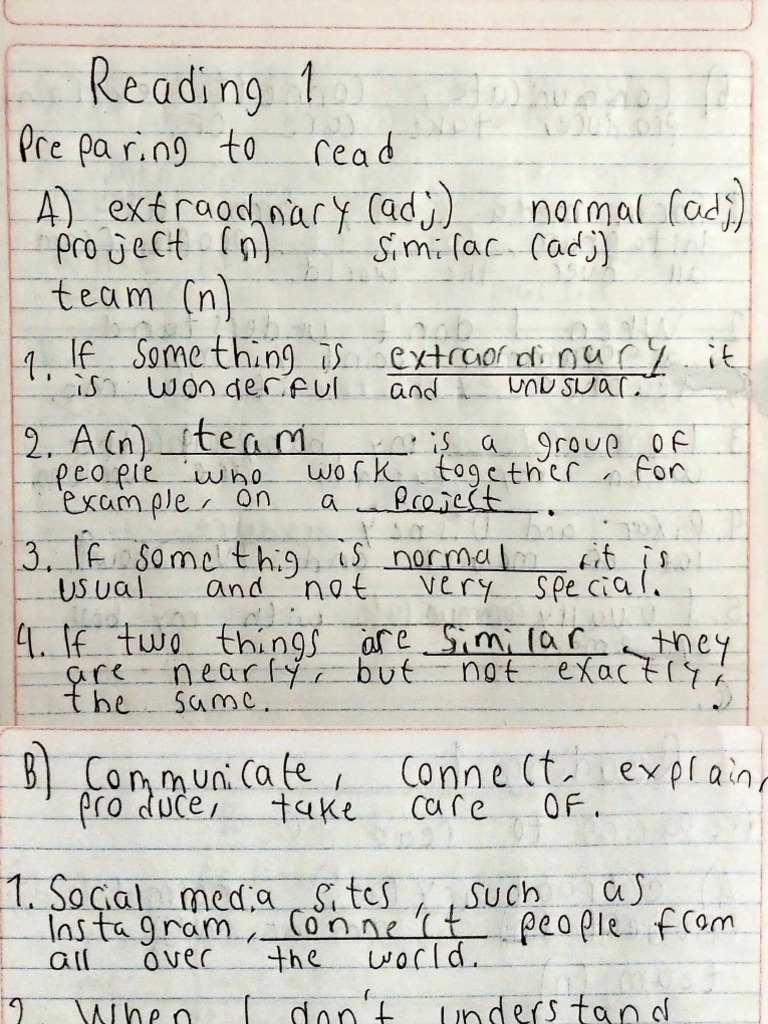 Reading 1
Preparing to read
A) extraodnary (adj) normal (adj)
project (n) similar (adj)
team (n)
1. If something is extraordinary it
is wonderful and unusual.
2. A(n) team is a group of
people who work together, for
example, on a Project.
3. If somethig is normal, it is
usual and not very special.
4. If two things are similar, they
are nearly, but not exactly,
the same.
B) Communicate, connect, explain,
produce, take care of.
1. Social media sites, such as
Instagram, connect people from
all over the world.
2. When I don't understand